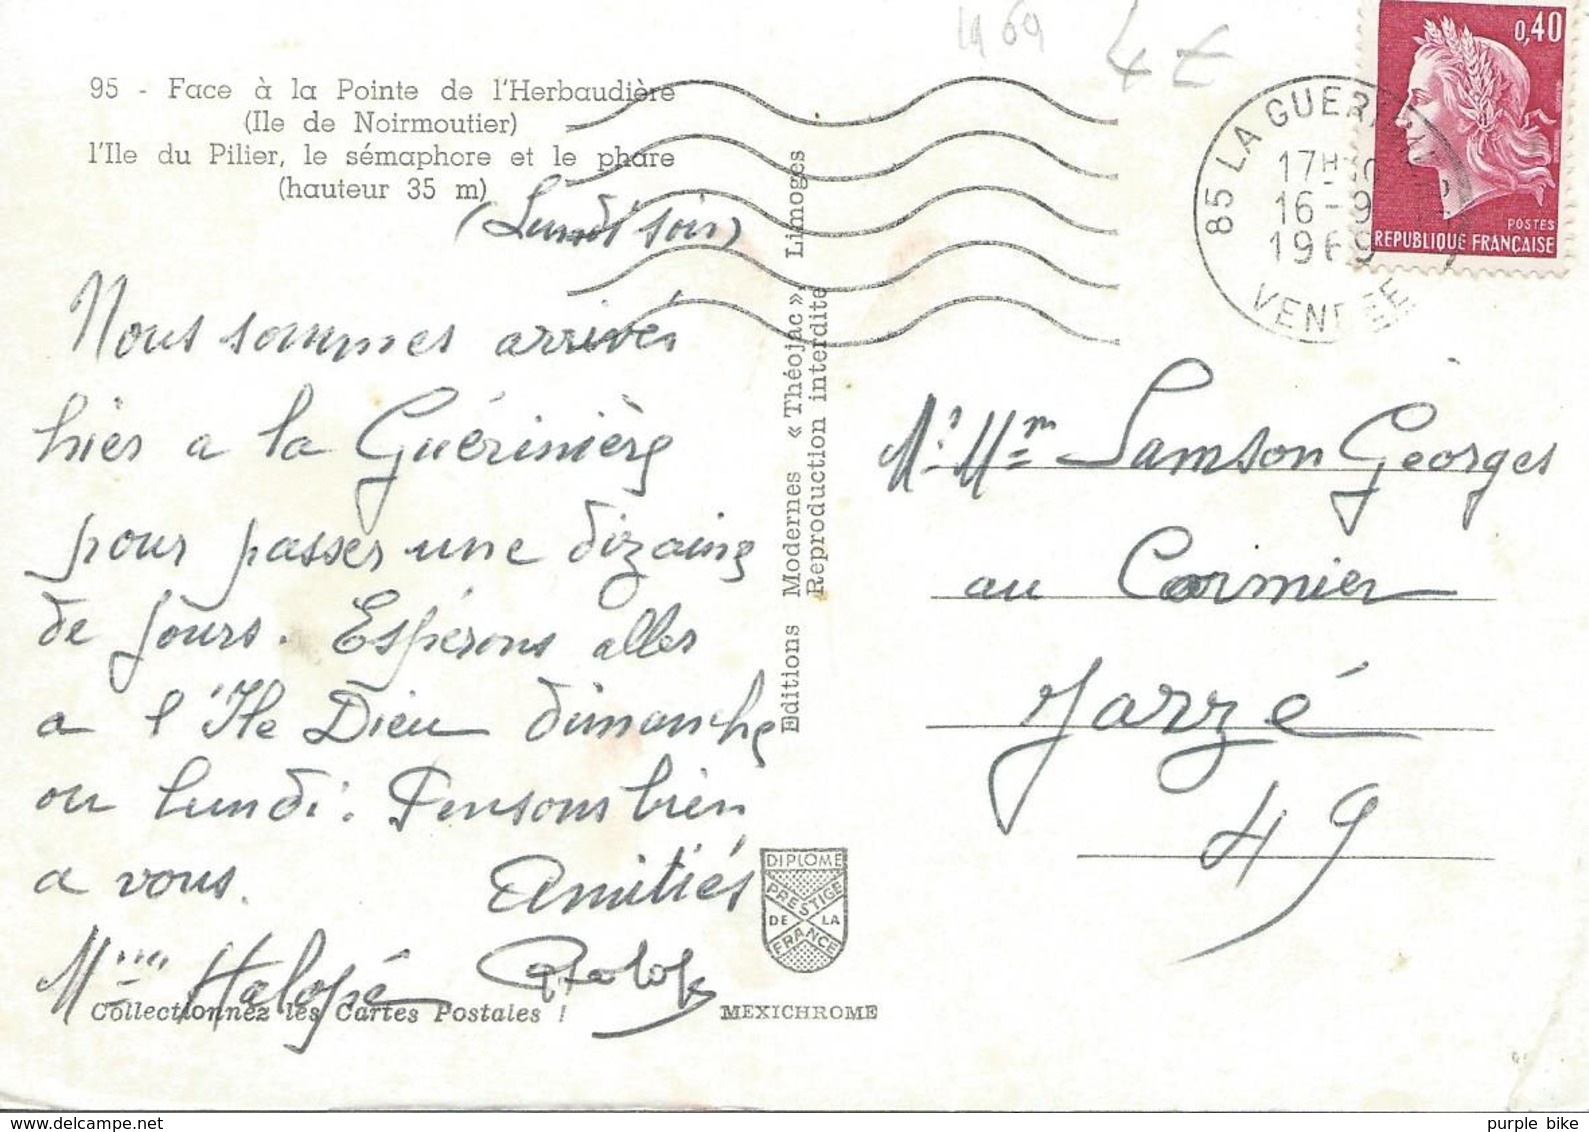 1969
4€
95 - Face à la Pointe de l'Herbaudière
(Ile de Noirmoutier)
l'Ile du Pilier, le sémaphore et le phare
(hauteur 35 m)
(Lundi soir)
Nous sommes arrivés
hier a la Guérinière
pour passer une dizaine
de jours. Espérons aller
a l'Ile Dieu dimanche
ou lundi. Pensons bien
a vous. Amitiés
Mme Halopé
Collectionnez les Cartes Postales !
Editions Modernes « Théojac », Limoges
Reproduction interdite
DIPLOME
PRESTIGE
DE LA
FRANCE
MEXICHROME
0,40
POSTES
REPUBLIQUE FRANÇAISE
85 LA GUERINIERE
17H30
16-9
1969
VENDEE
Mr Mme Samson Georges
au Cormier
Jarzé
49
purple bike